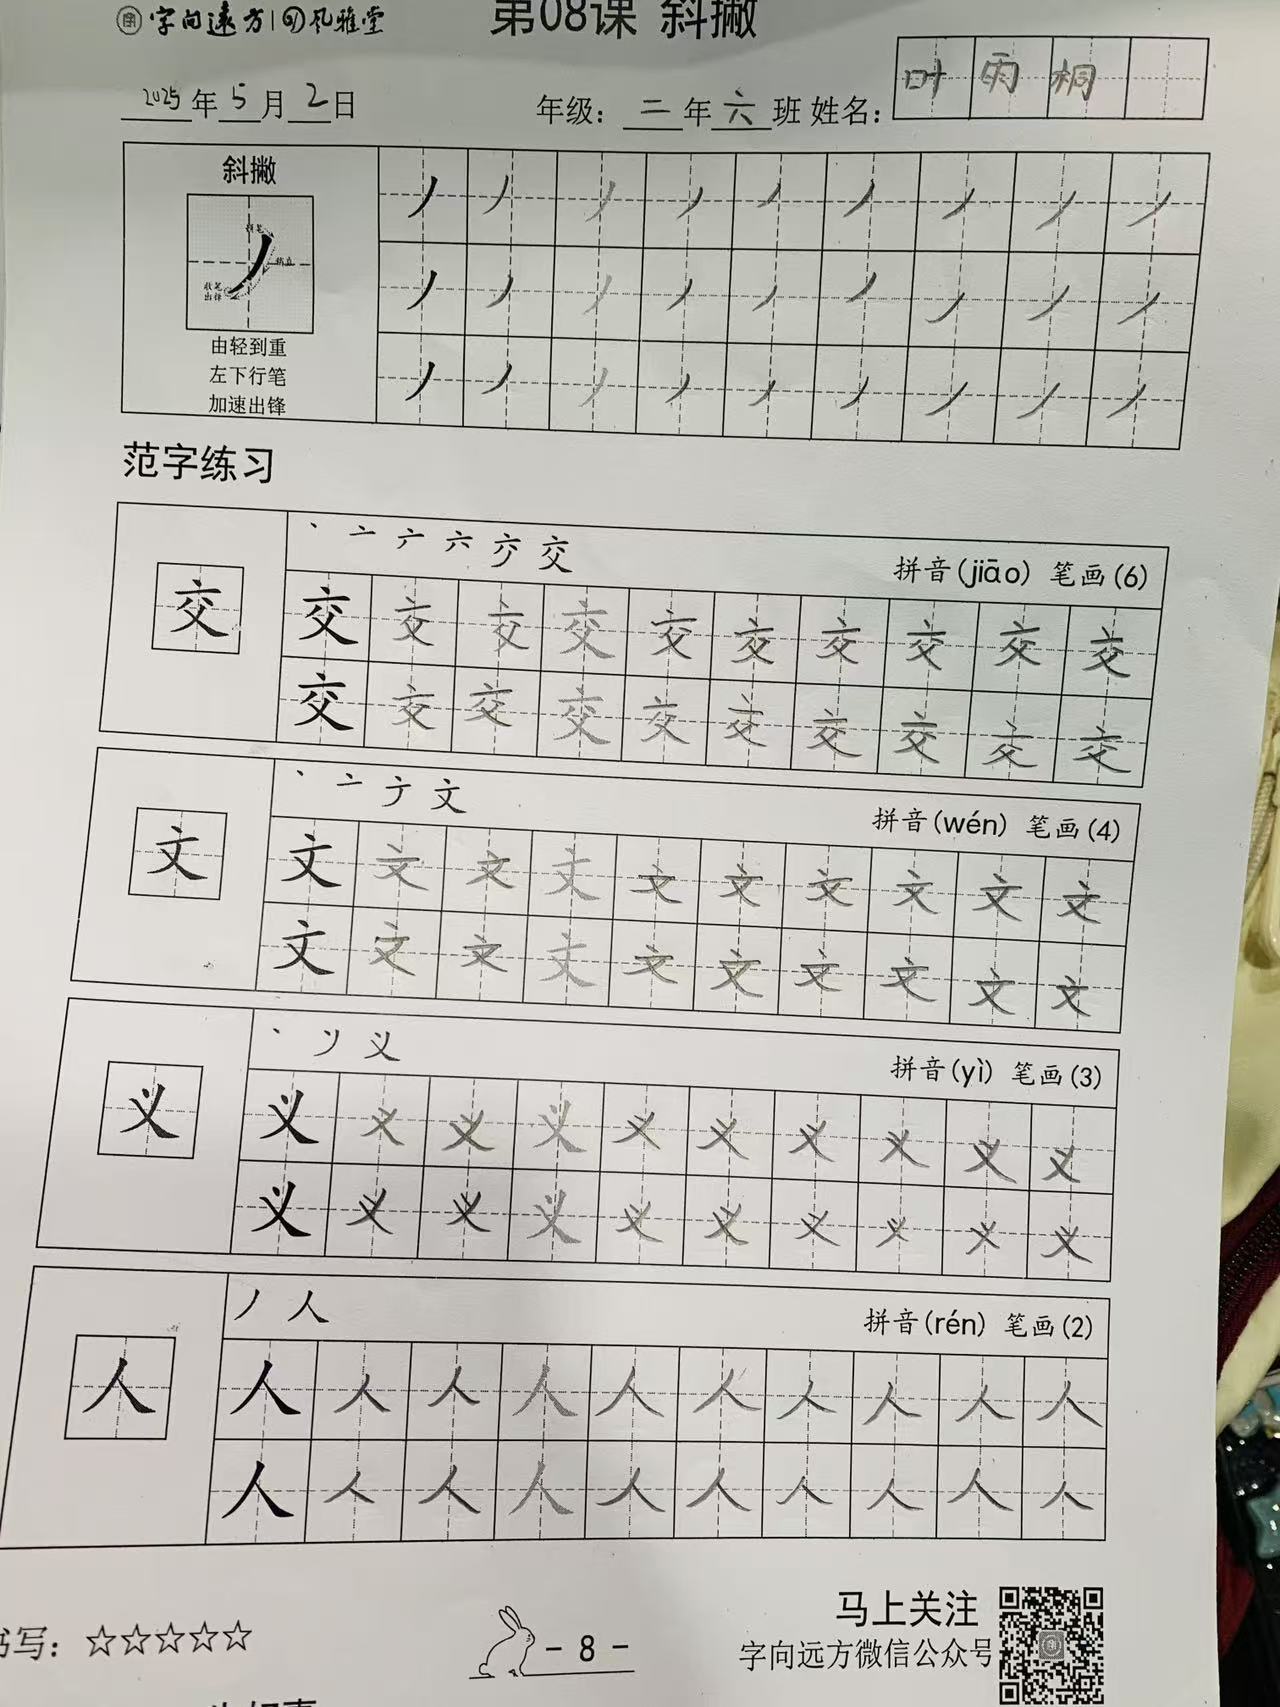 字向远方 风雅堂
第08课 斜撇
2025年5月2日 年级：二年六班 姓名：叶雨桐
斜撇
收笔
出锋
由轻到重
左下行笔
加速出锋
范字练习
丶 亠 六 交 拼音(jiāo) 笔画(6)
交 交 交 交 交 交 交 交 交 交 交
交 交 交 交 交 交 交 交 交 交
丶 亠 文 拼音(wén) 笔画(4)
文 文 文 文 文 文 文 文 文 文 文
文 文 文 文 文 文 文 文 文 文
丶 义 拼音(yì) 笔画(3)
义 义 义 义 义 义 义 义 义 义 义
义 义 义 义 义 义 义 义 义 义
丿 人 拼音(rén) 笔画(2)
人 人 人 人 人 人 人 人 人 人 人
人 人 人 人 人 人 人 人 人 人
书写：☆☆☆☆☆
- 8 -
马上关注
字向远方微信公众号